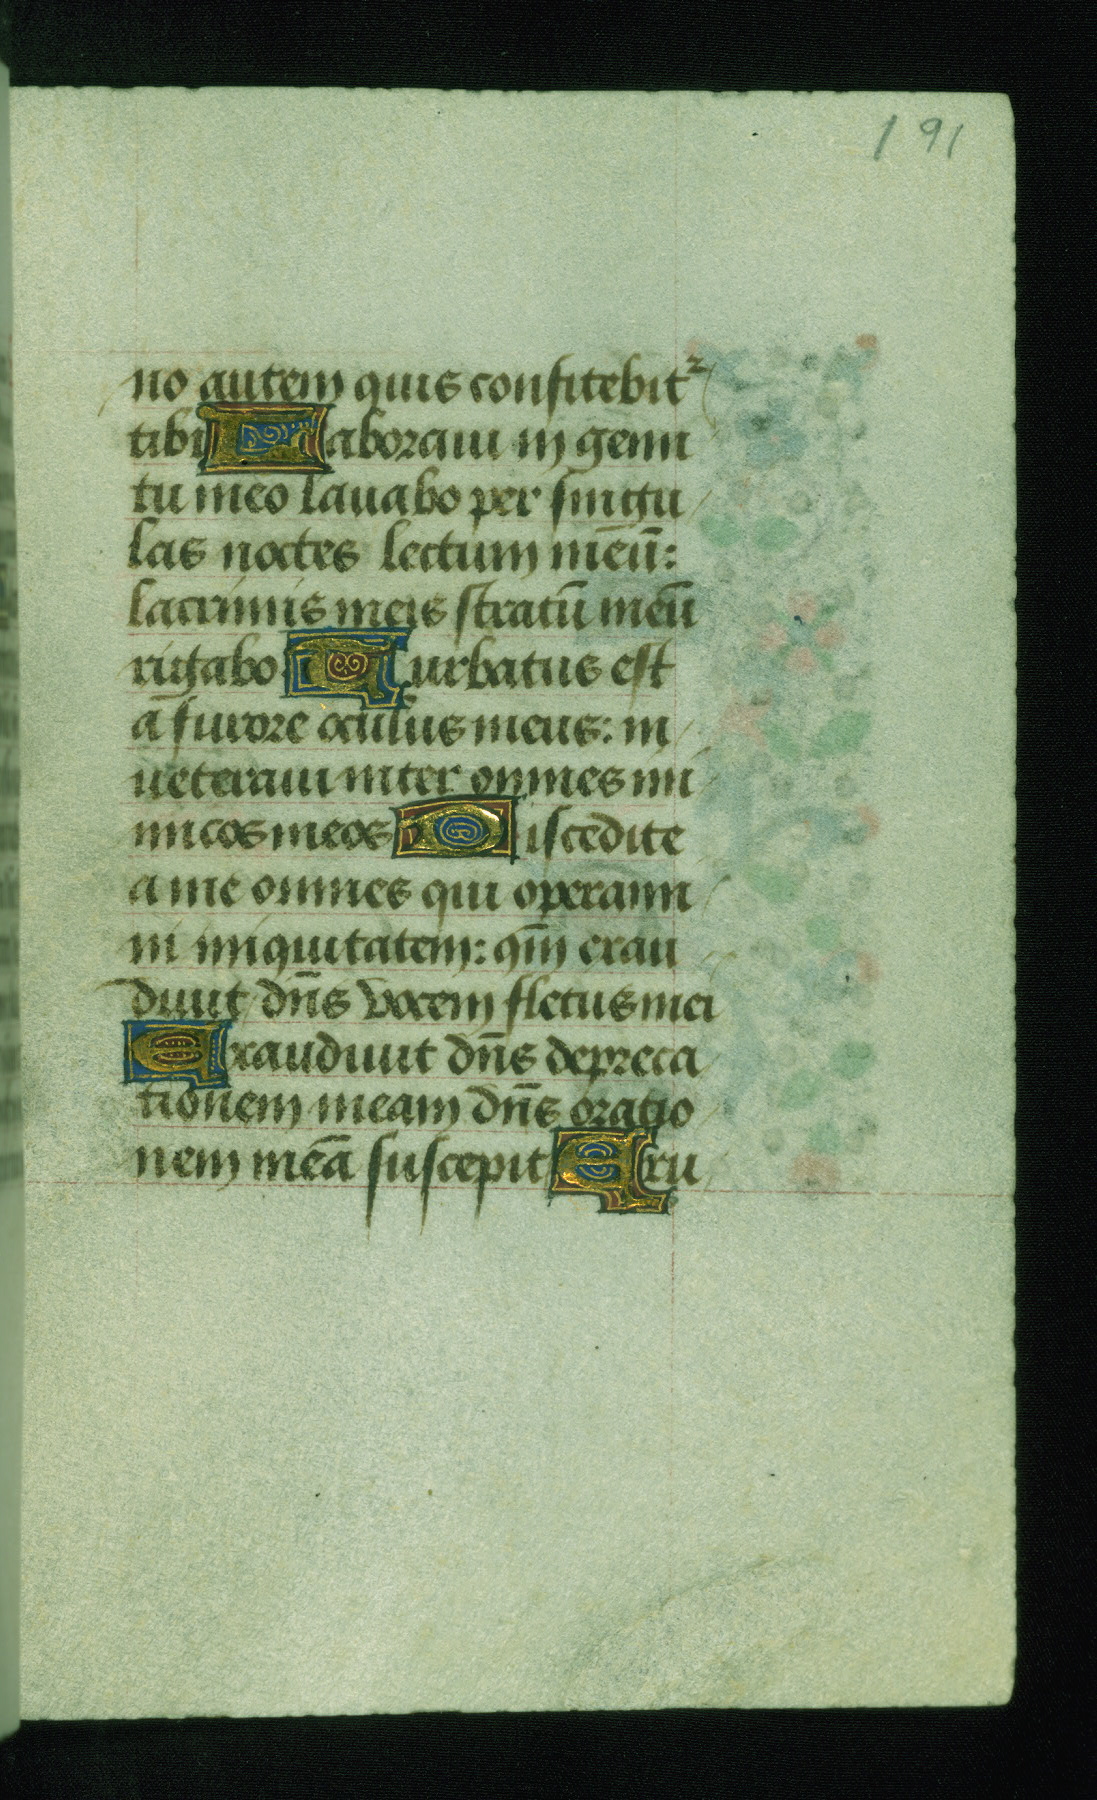 191
no autem quis confitebit²
tibi Laboraui in gemi
tu meo lauabo per singu
las noctes lectum meū:
lacrimis meis stratū meū
rigabo Turbatus est
a furore oculus meus: in
ueteraui inter omnes ini
micos meos Discedite
a me omnes qui operami
ni iniquitatem: qm̄ exau
diuit dn̄s vocem fletus mei
Exaudiuit dn̄s depreca
tionem meam dn̄s oratio
nem meā suscepit Eru